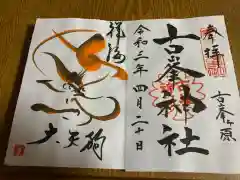 奉拝
古峯ヶ原
古峯神社
令和三年四月二十日
祝福
大天狗